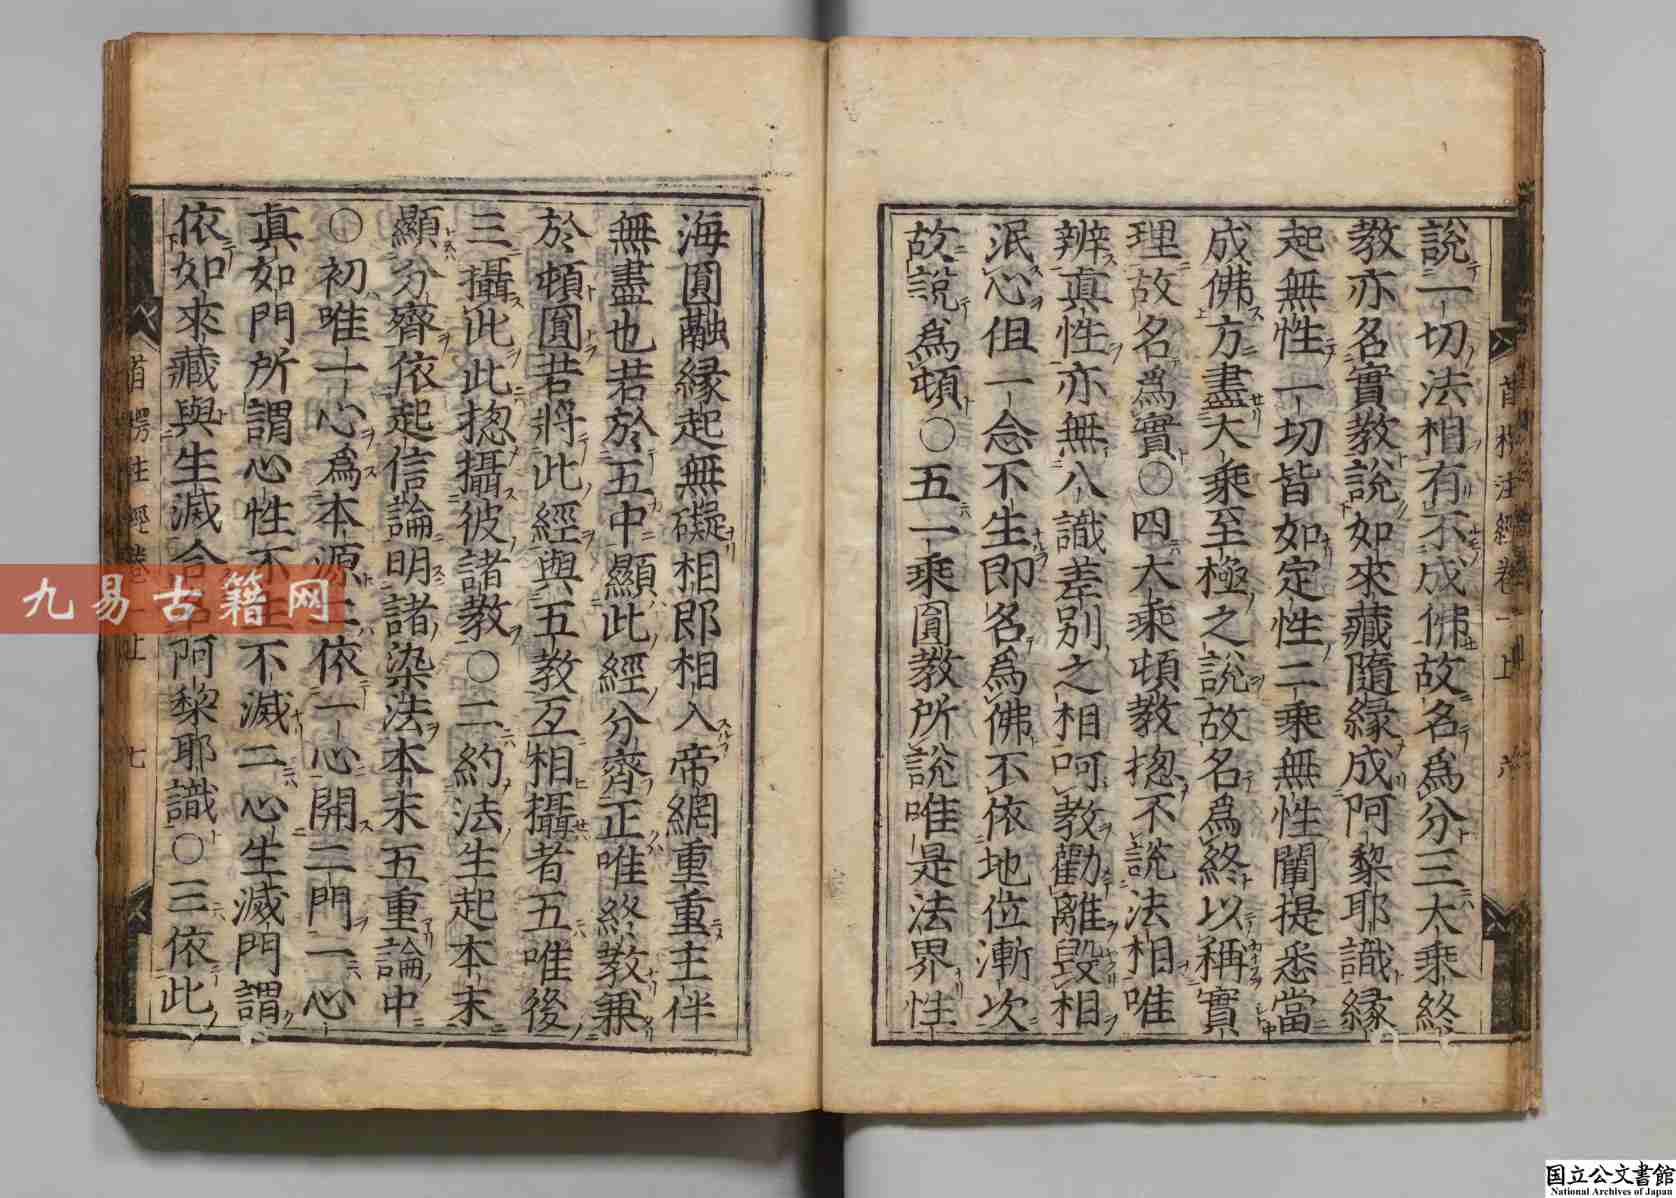 說一切法相有不成佛故名爲分三大乘終
教亦名實教說如來藏隨緣成阿黎耶識緣
起無性一切皆如定性二乘無性闡提悉當
成佛方盡大乘至極之說故名爲終以稱實
理故名爲實〇四大乘頓教揔不說法相唯
辨真性亦無八識差別之相呵教勸離毀相
泯心但一念不生即名爲佛不依地位漸次
故說爲頓〇五一乘圓教所說唯是法界性
海圓融緣起無礙相即相入帝網重重主伴
無盡也若於五中顯此經分齊正唯終教兼
於頓圓若將此經與五教互相攝者五唯後
三攝此此揔攝彼諸教〇二約法生起本末
顯分齊依起信論明諸染法本末五重論中
〇初唯一心爲本源依一心開二門一心
真如門所謂心性不不滅二心生滅門謂
依如來藏與生滅合阿黎耶識〇三依此
首楞注經卷一上 六
首楞注經卷一上 七
九易古籍网
国立公文書館
National Archives of Japan